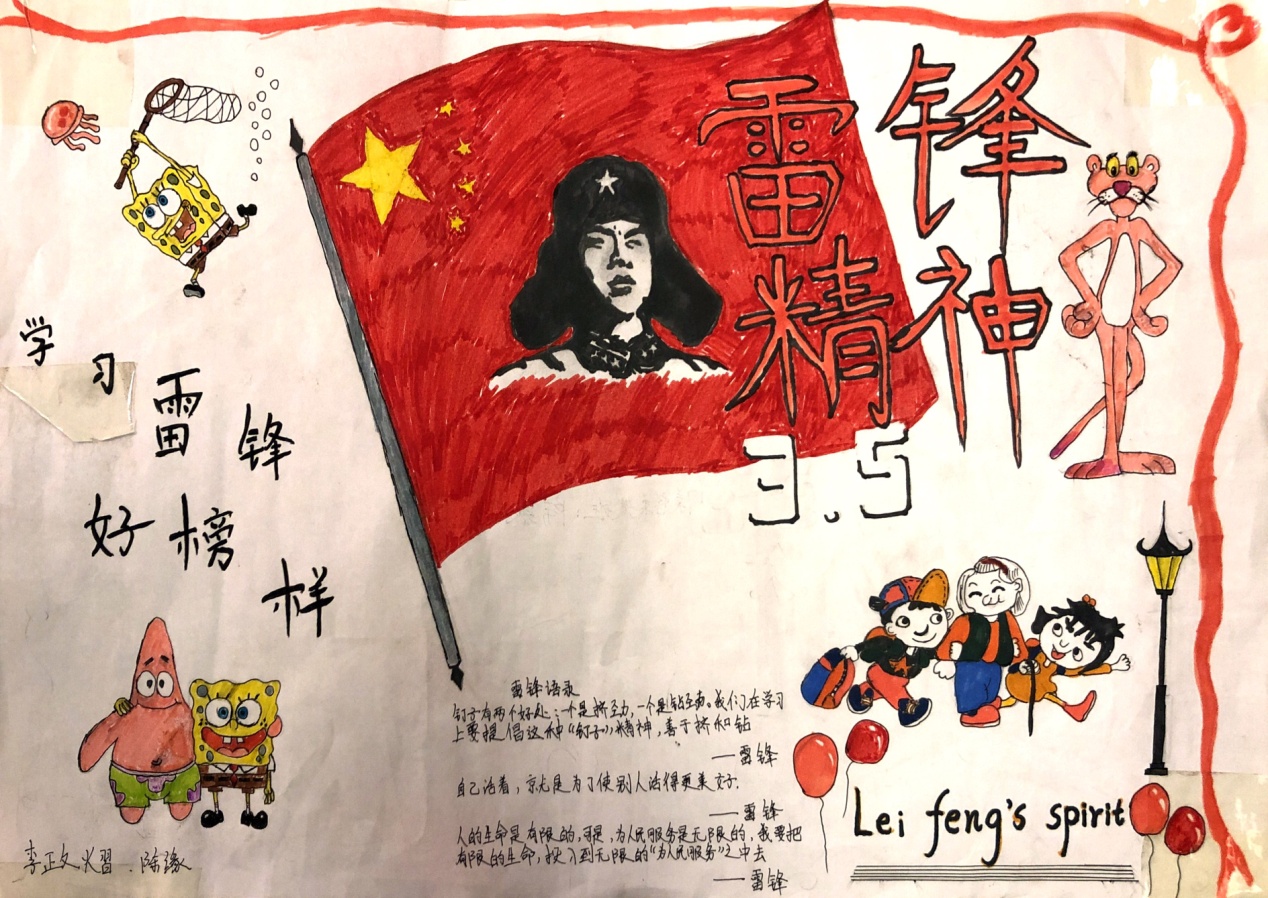 雷锋
精神
3.5
学习
雷锋
好榜样
雷锋语录
钉子有两个好处:一个是挤劲,一个是钻劲。我们在学习
上要提倡这种“钉子”精神,善于挤和钻
——雷锋
自己活着,就是为了使别人活得更美好.
——雷锋
人的生命是有限的,可是,为人民服务是无限的,我要把
有限的生命,投入到无限的“为人民服务”之中去
——雷锋
Lei feng's spirit
李正